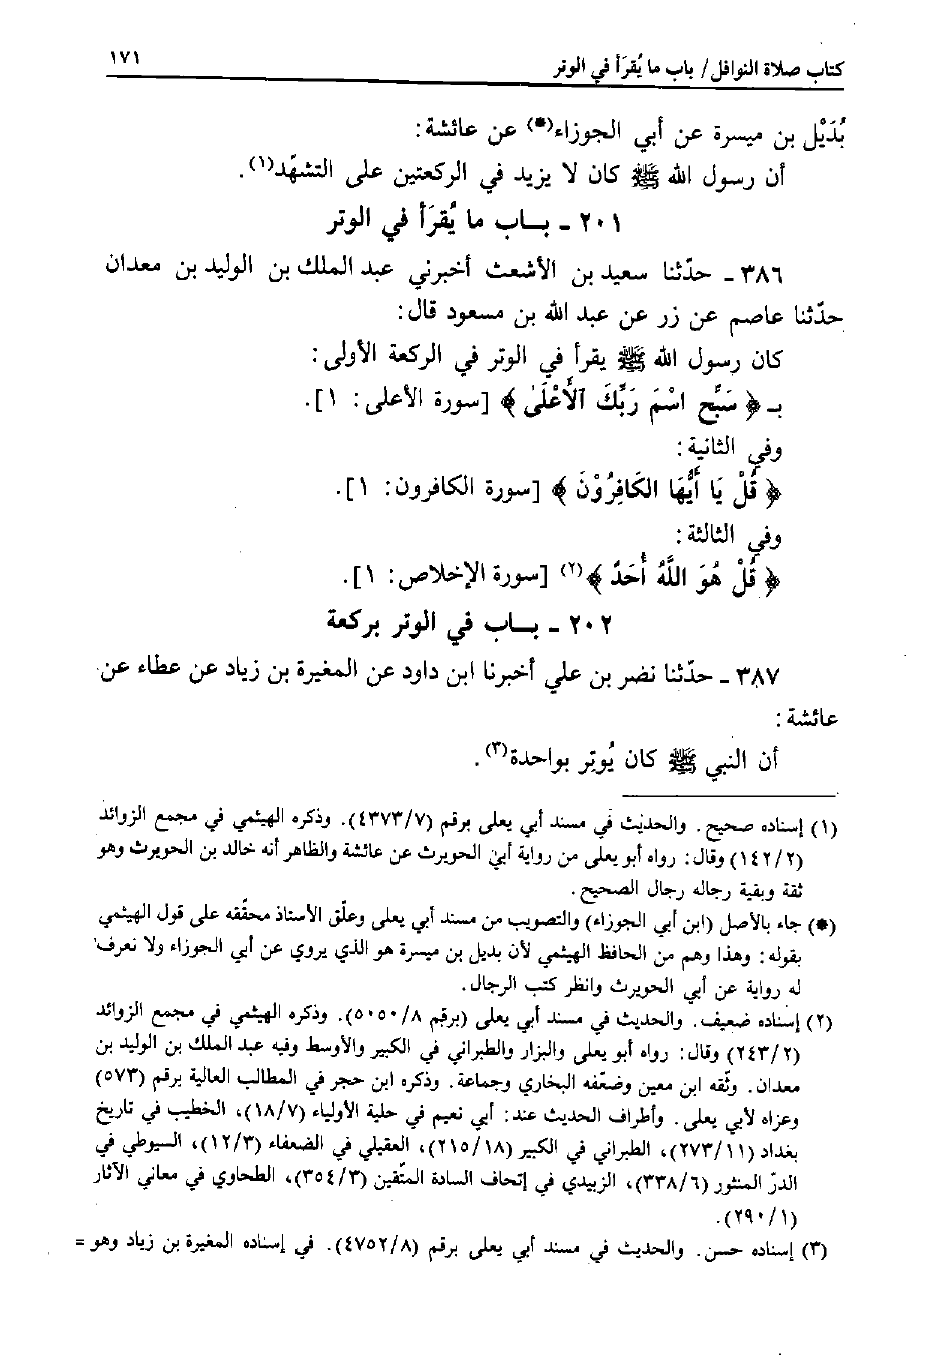 كتاب صلاة النوافل / باب ما يُقرَأ في الوتر
١٧١
بُدَيْل بن ميسرة عن أبي الجوزاء(*) عن عائشة:
أن رسول الله ﷺ كان لا يزيد في الركعتين على التشهّد(١).
٢٠١ ـ بـاب ما يُقرَأ في الوتر
٣٨٦ ـ حدّثنا سعيد بن الأشعث أخبرني عبد الملك بن الوليد بن معدان
حدّثنا عاصم عن زر عن عبد الله بن مسعود قال:
كان رسول الله ﷺ يقرأ في الوتر في الركعة الأولى:
بـ ﴿ سَبِّح اسْمَ رَبِّكَ ٱلأَعْلَىٰ ﴾ [سورة الأعلى: ١].
وفي الثانية:
﴿ قُلْ يَا أَيُّهَا الكَافِرُوْنَ ﴾ [سورة الكافرون: ١].
وفي الثالثة:
﴿ قُلْ هُوَ اللَّهُ أَحَدٌ ﴾(٢) [سورة الإخلاص: ١].
٢٠٢ ـ بـاب في الوتر بركعة
٣٨٧ ـ حدّثنا نضر بن علي أخبرنا ابن داود عن المغيرة بن زياد عن عطاء عن
عائشة:
أن النبي ﷺ كان يُوتِر بواحدة(٣).
(١) إسناده صحيح. والحديث في مسند أبي يعلى برقم (٤٣٧٣/٧). وذكره الهيثمي في مجمع الزوائد
(١٤٢/٢) وقال: رواه أبو يعلى من رواية أبي الحويرث عن عائشة والظاهر أنه خالد بن الحويرث وهو
ثقة وبقية رجاله رجال الصحيح.
(*) جاء بالأصل (ابن أبي الجوزاء) والتصويب من مسند أبي يعلى وعلّق الأستاذ محقّقه على قول الهيثمي
بقوله: وهذا وهم من الحافظ الهيثمي لأن بديل بن ميسرة هو الذي يروي عن أبي الجوزاء ولا نعرف
له رواية عن أبي الحويرث وانظر كتب الرجال.
(٢) إسناده ضعيف. والحديث في مسند أبي يعلى (برقم ٥٠٥٠/٨). وذكره الهيثمي في مجمع الزوائد
(٢٤٣/٢) وقال: رواه أبو يعلى والبزار والطبراني في الكبير والأوسط وفيه عبد الملك بن الوليد بن
معدان. وثّقه ابن معين وضعّفه البخاري وجماعة. وذكره ابن حجر في المطالب العالية برقم (٥٧٣)
وعزاه لأبي يعلى. وأطراف الحديث عند: أبي نعيم في حلية الأولياء (١٨/٧)، الخطيب في تاريخ
بغداد (٢٧٣/١١)، الطبراني في الكبير (٢١٥/١٨)، العقيلي في الضعفاء (١٢/٣)، السيوطي في
الدرّ المنثور (٣٣٨/٦)، الزبيدي في إتحاف السادة المتّقين (٣٥٤/٣)، الطحاوي في معاني الآثار
(٢٩٠/١).
(٣) إسناده حسن. والحديث في مسند أبي يعلى برقم (٤٧٥٢/٨). في إسناده المغيرة بن زياد وهو =